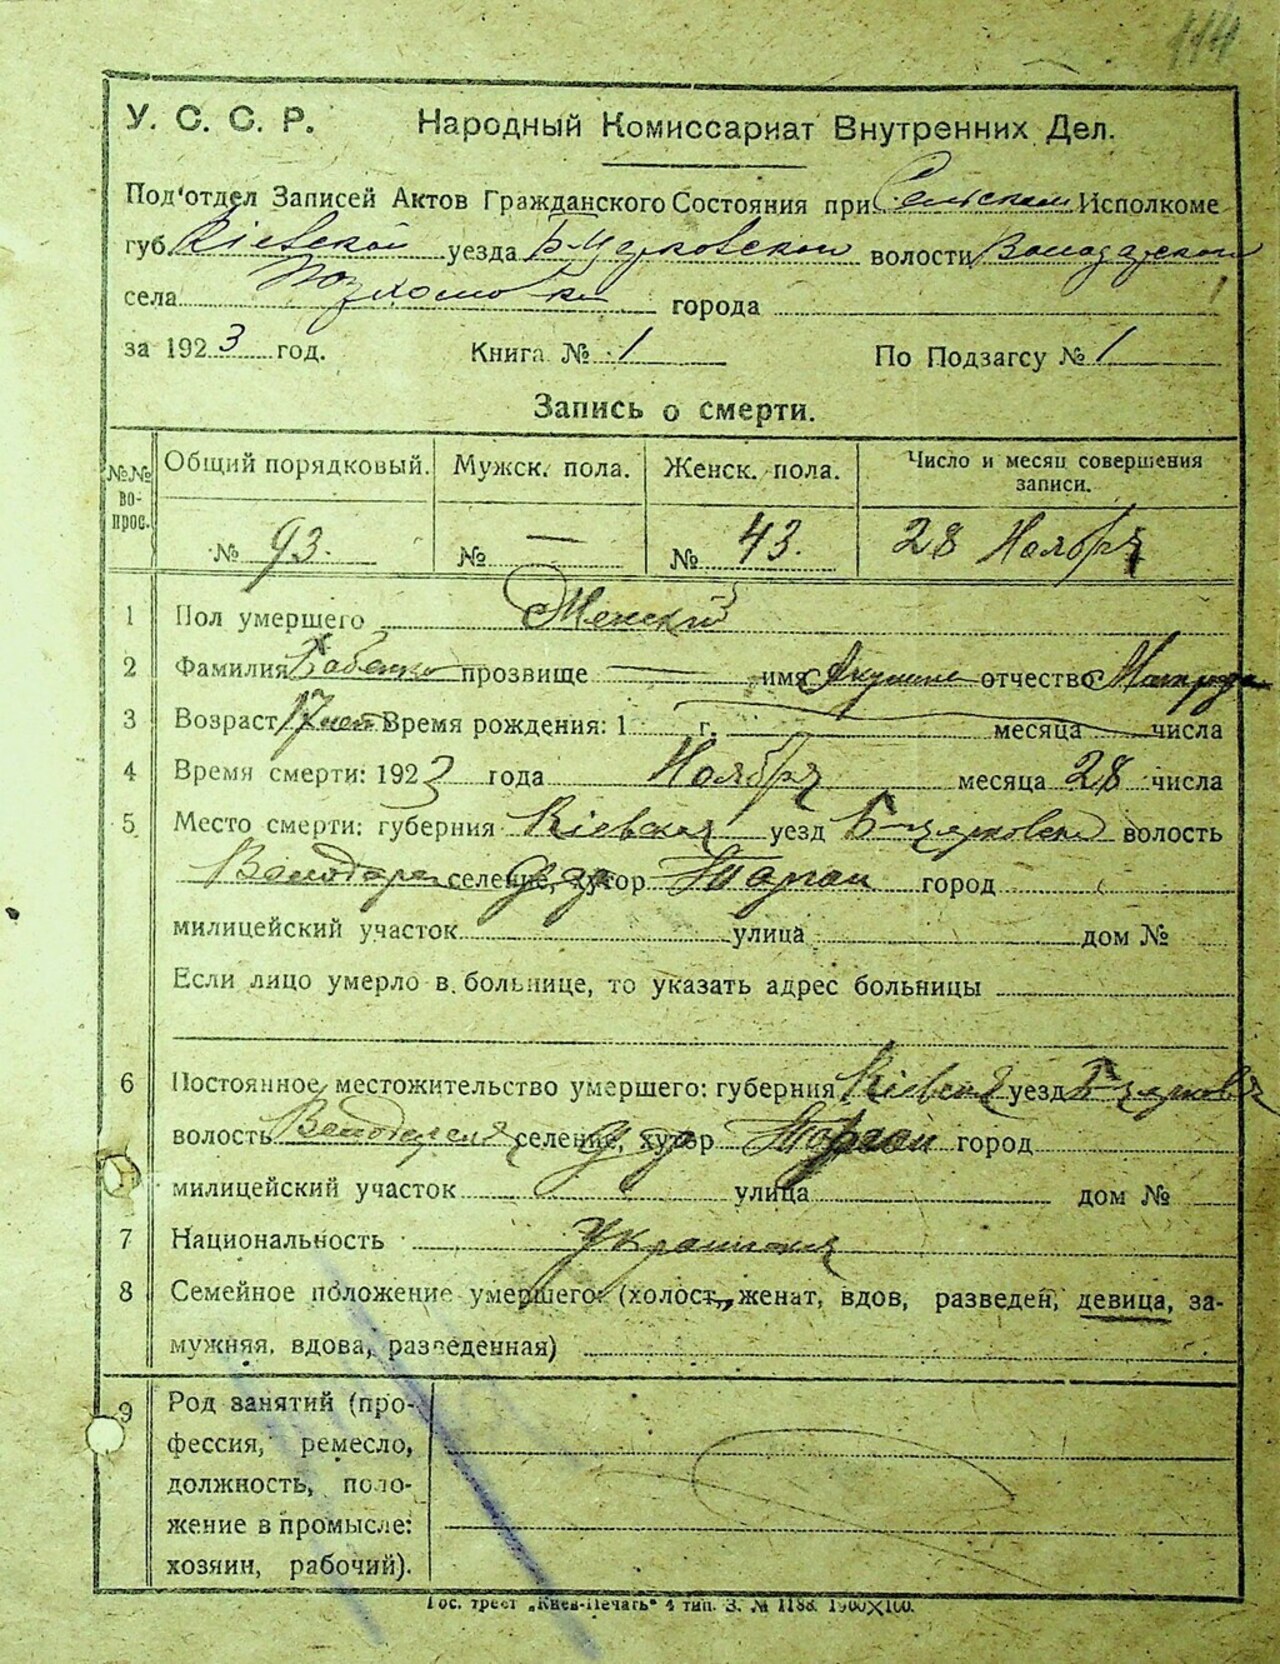 114
У. С. С. Р. Народный Комиссариат Внутренних Дел.
Под'отдел Записей Актов Гражданского Состояния при Сельском Исполкоме
губ. Кіевской уезда Б-Церковской волости Володарской
села города
за 1923 год. Книга № 1 По Подзагсу № 1
Запись о смерти.
№№ вопрос. Общий порядковый. Мужск. пола. Женск. пола. Число и месяц совершения записи.
№ 93. № — № 43. 28 Ноября
1 Пол умершего Женский
2 Фамилия Бабенко прозвище — имя отчество
3 Возраст 17 лет Время рождения: 1 г. месяца числа
4 Время смерти: 1923 года Ноября месяца 28 числа
5 Место смерти: губерния Кіевская уезд Б-церковский волость
Володарск селение, хутор город
милицейский участок улица дом №
Если лицо умерло в больнице, то указать адрес больницы
6 Постоянное местожительство умершего: губерния Кіевская уезд Б-церковск
волость Володарская селение, хутор город
милицейский участок улица дом №
7 Национальность
8 Семейное положение умершего: (холост, женат, вдов, разведен, девица, за-
мужняя, вдова, разведенная)
9 Род занятий (про-
фессия, ремесло,
должность, поло-
жение в промысле:
хозяин, рабочий).
Гос. трест „Киев-Печать" 4 тип. З. № 1188. 1900×100.